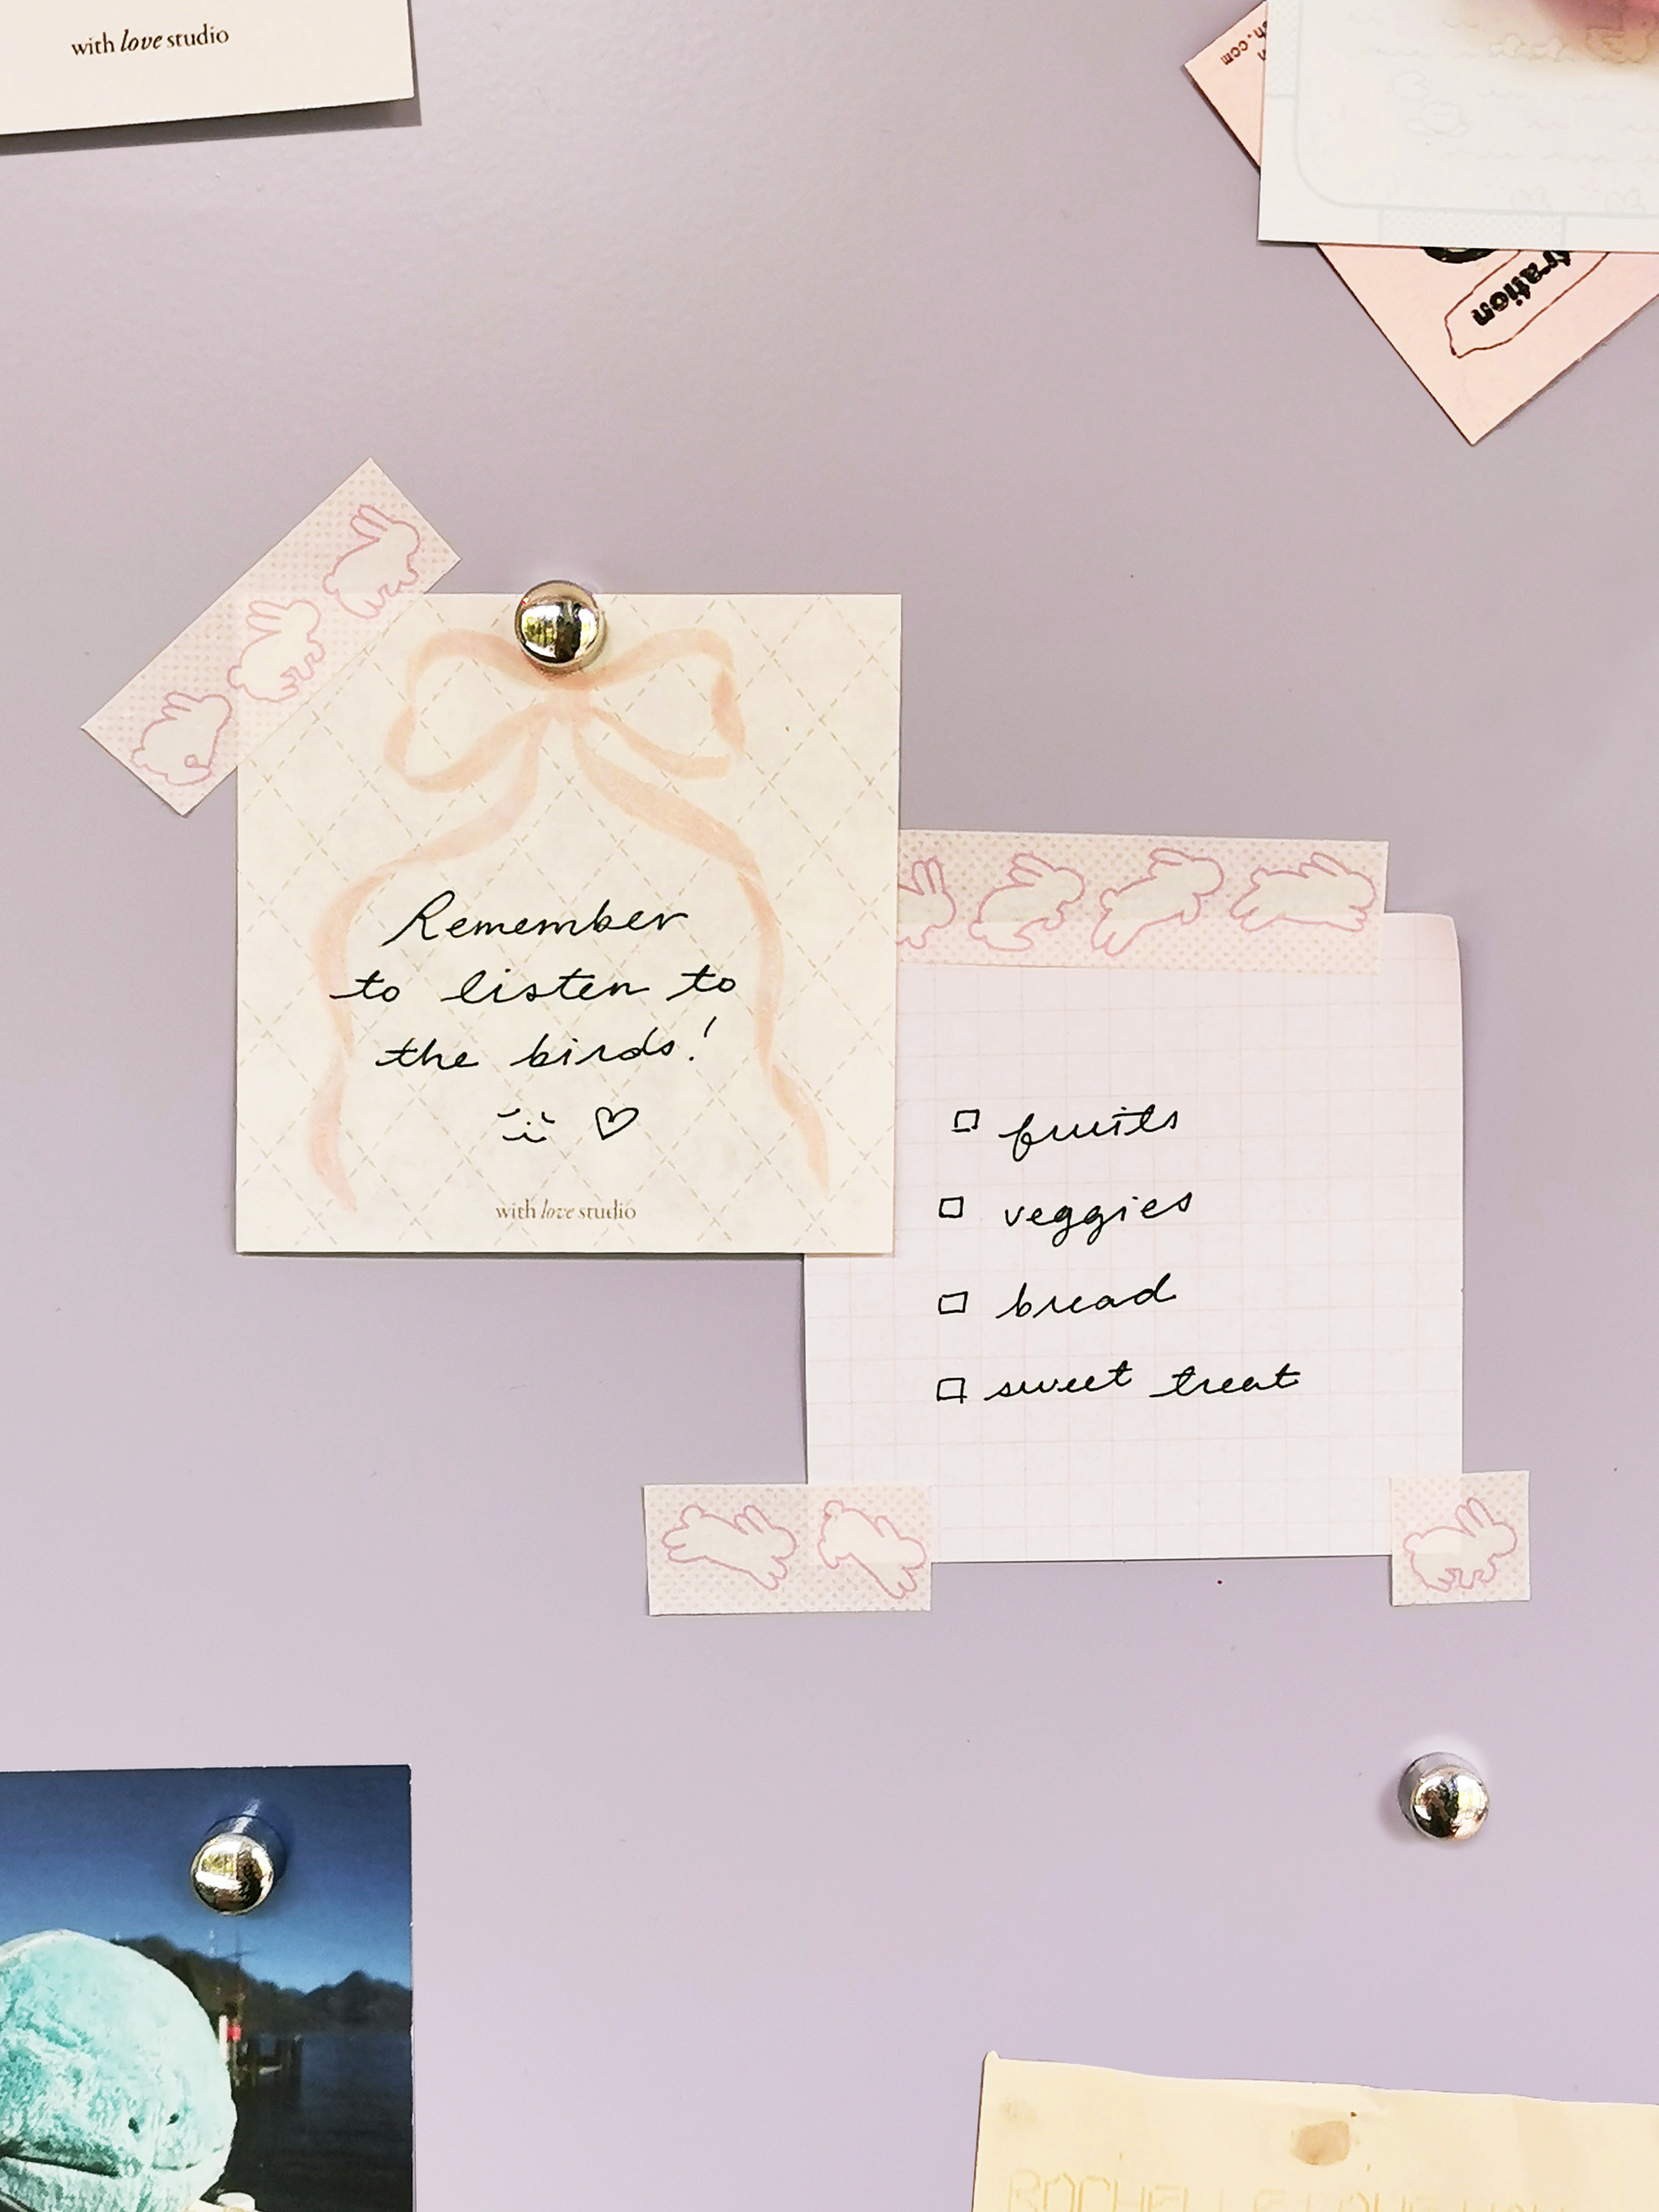 with love studio
tration
Remember
to listen to
the birds!
with love studio
fruits
veggies
bread
sweet treat
ROCHELLE LOVE YOU